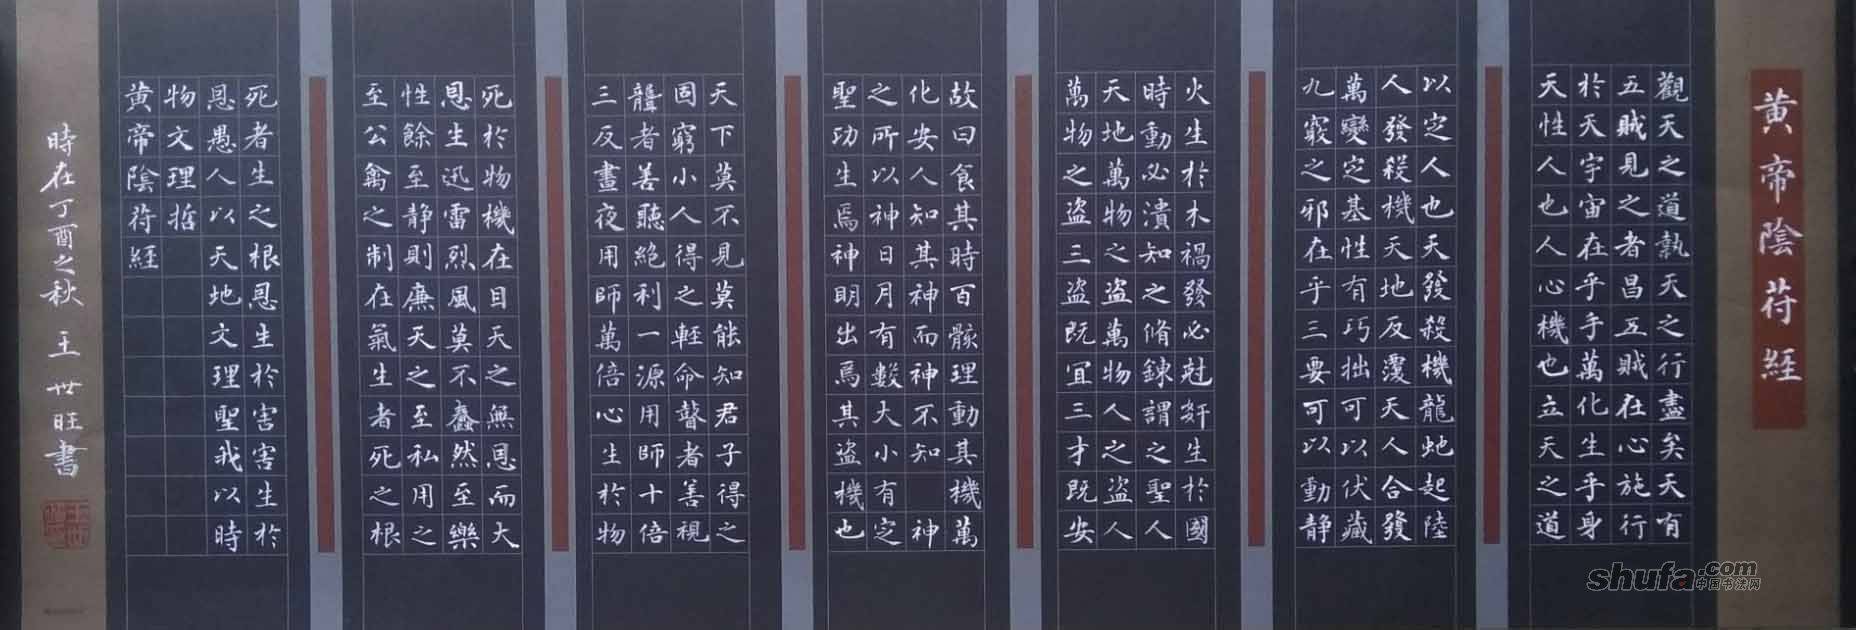 黄帝陰苻經
觀天之道執天之行盡矣天有
五賊見之者昌五賊在心施行
於天宇宙在乎手萬化生乎身
天性人也人心機也立天之道
以定人也天發殺機龍虵起陸
人發殺機天地反覆天人合發
萬變定基性有巧拙可以伏藏
九竅之邪在乎三要可以動静
火生於木禍發必尅姧生於國
時動必潰知之脩錬謂之聖人
天地萬物之盜萬物人之盜人
萬物之盜三盜既宜三才既安
故曰食其時百骸理動其機萬
化安人知其神而神不知 神
之所以神日月有數大小有定
聖功生焉神明出焉其盜機也
天下莫不見莫能知君子得之
固窮小人得之輕命瞽者善視
聾者善聽絶利一源用師十倍
三反晝夜用師萬倍心生於物
死於物機在目天之無恩而大
恩生迅雷烈風莫不蠢然至樂
性餘至静則廉天之至私用之
至公禽之制在氣生者死之根
死者生之根恩生於害害生於
恩愚人以天地文理聖我以時
物文理哲
黄帝陰苻經
時在丁酉之秋 王世旺書
shufa.com
中国书法网